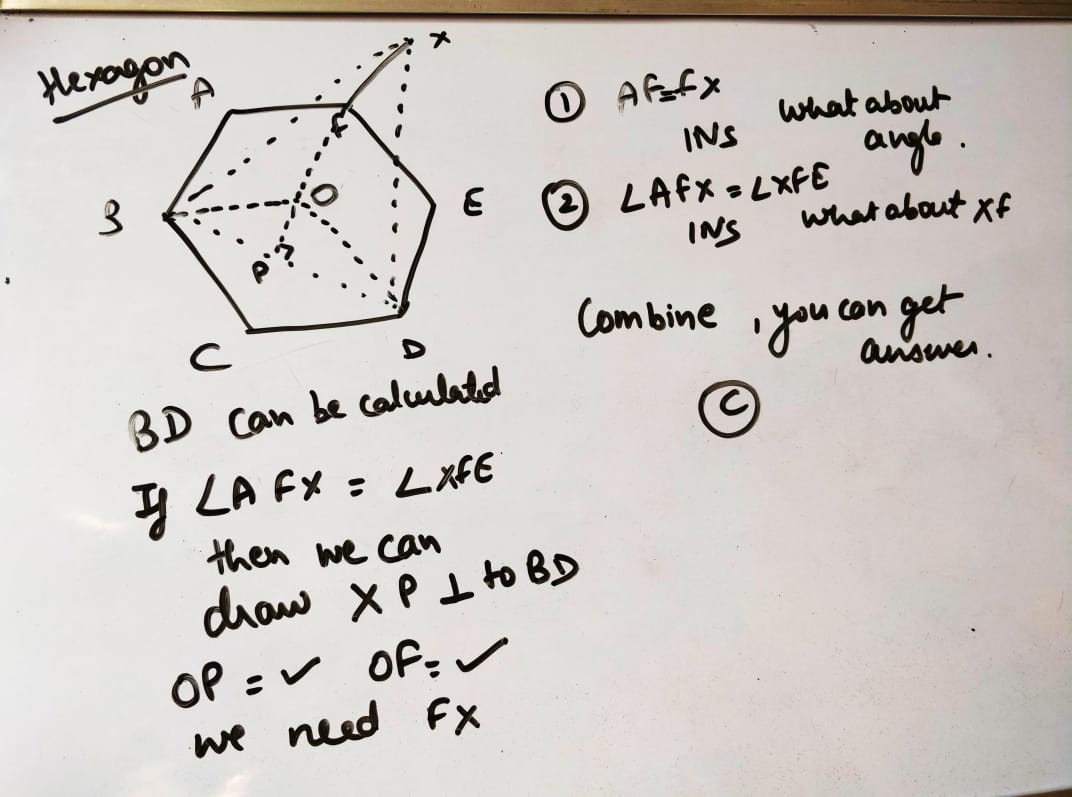 Hexagon
A
X
F
B
O
E
P
C
D
BD can be calculated
If ∠AFX = ∠XFE
then we can
draw XP ⊥ to BD
OP = ✓ OF = ✓
we need FX
① AF=FX
INS what about
angle.
② ∠AFX = ∠XFE
INS what about XF
Combine, you can get
answer.
Ⓒ